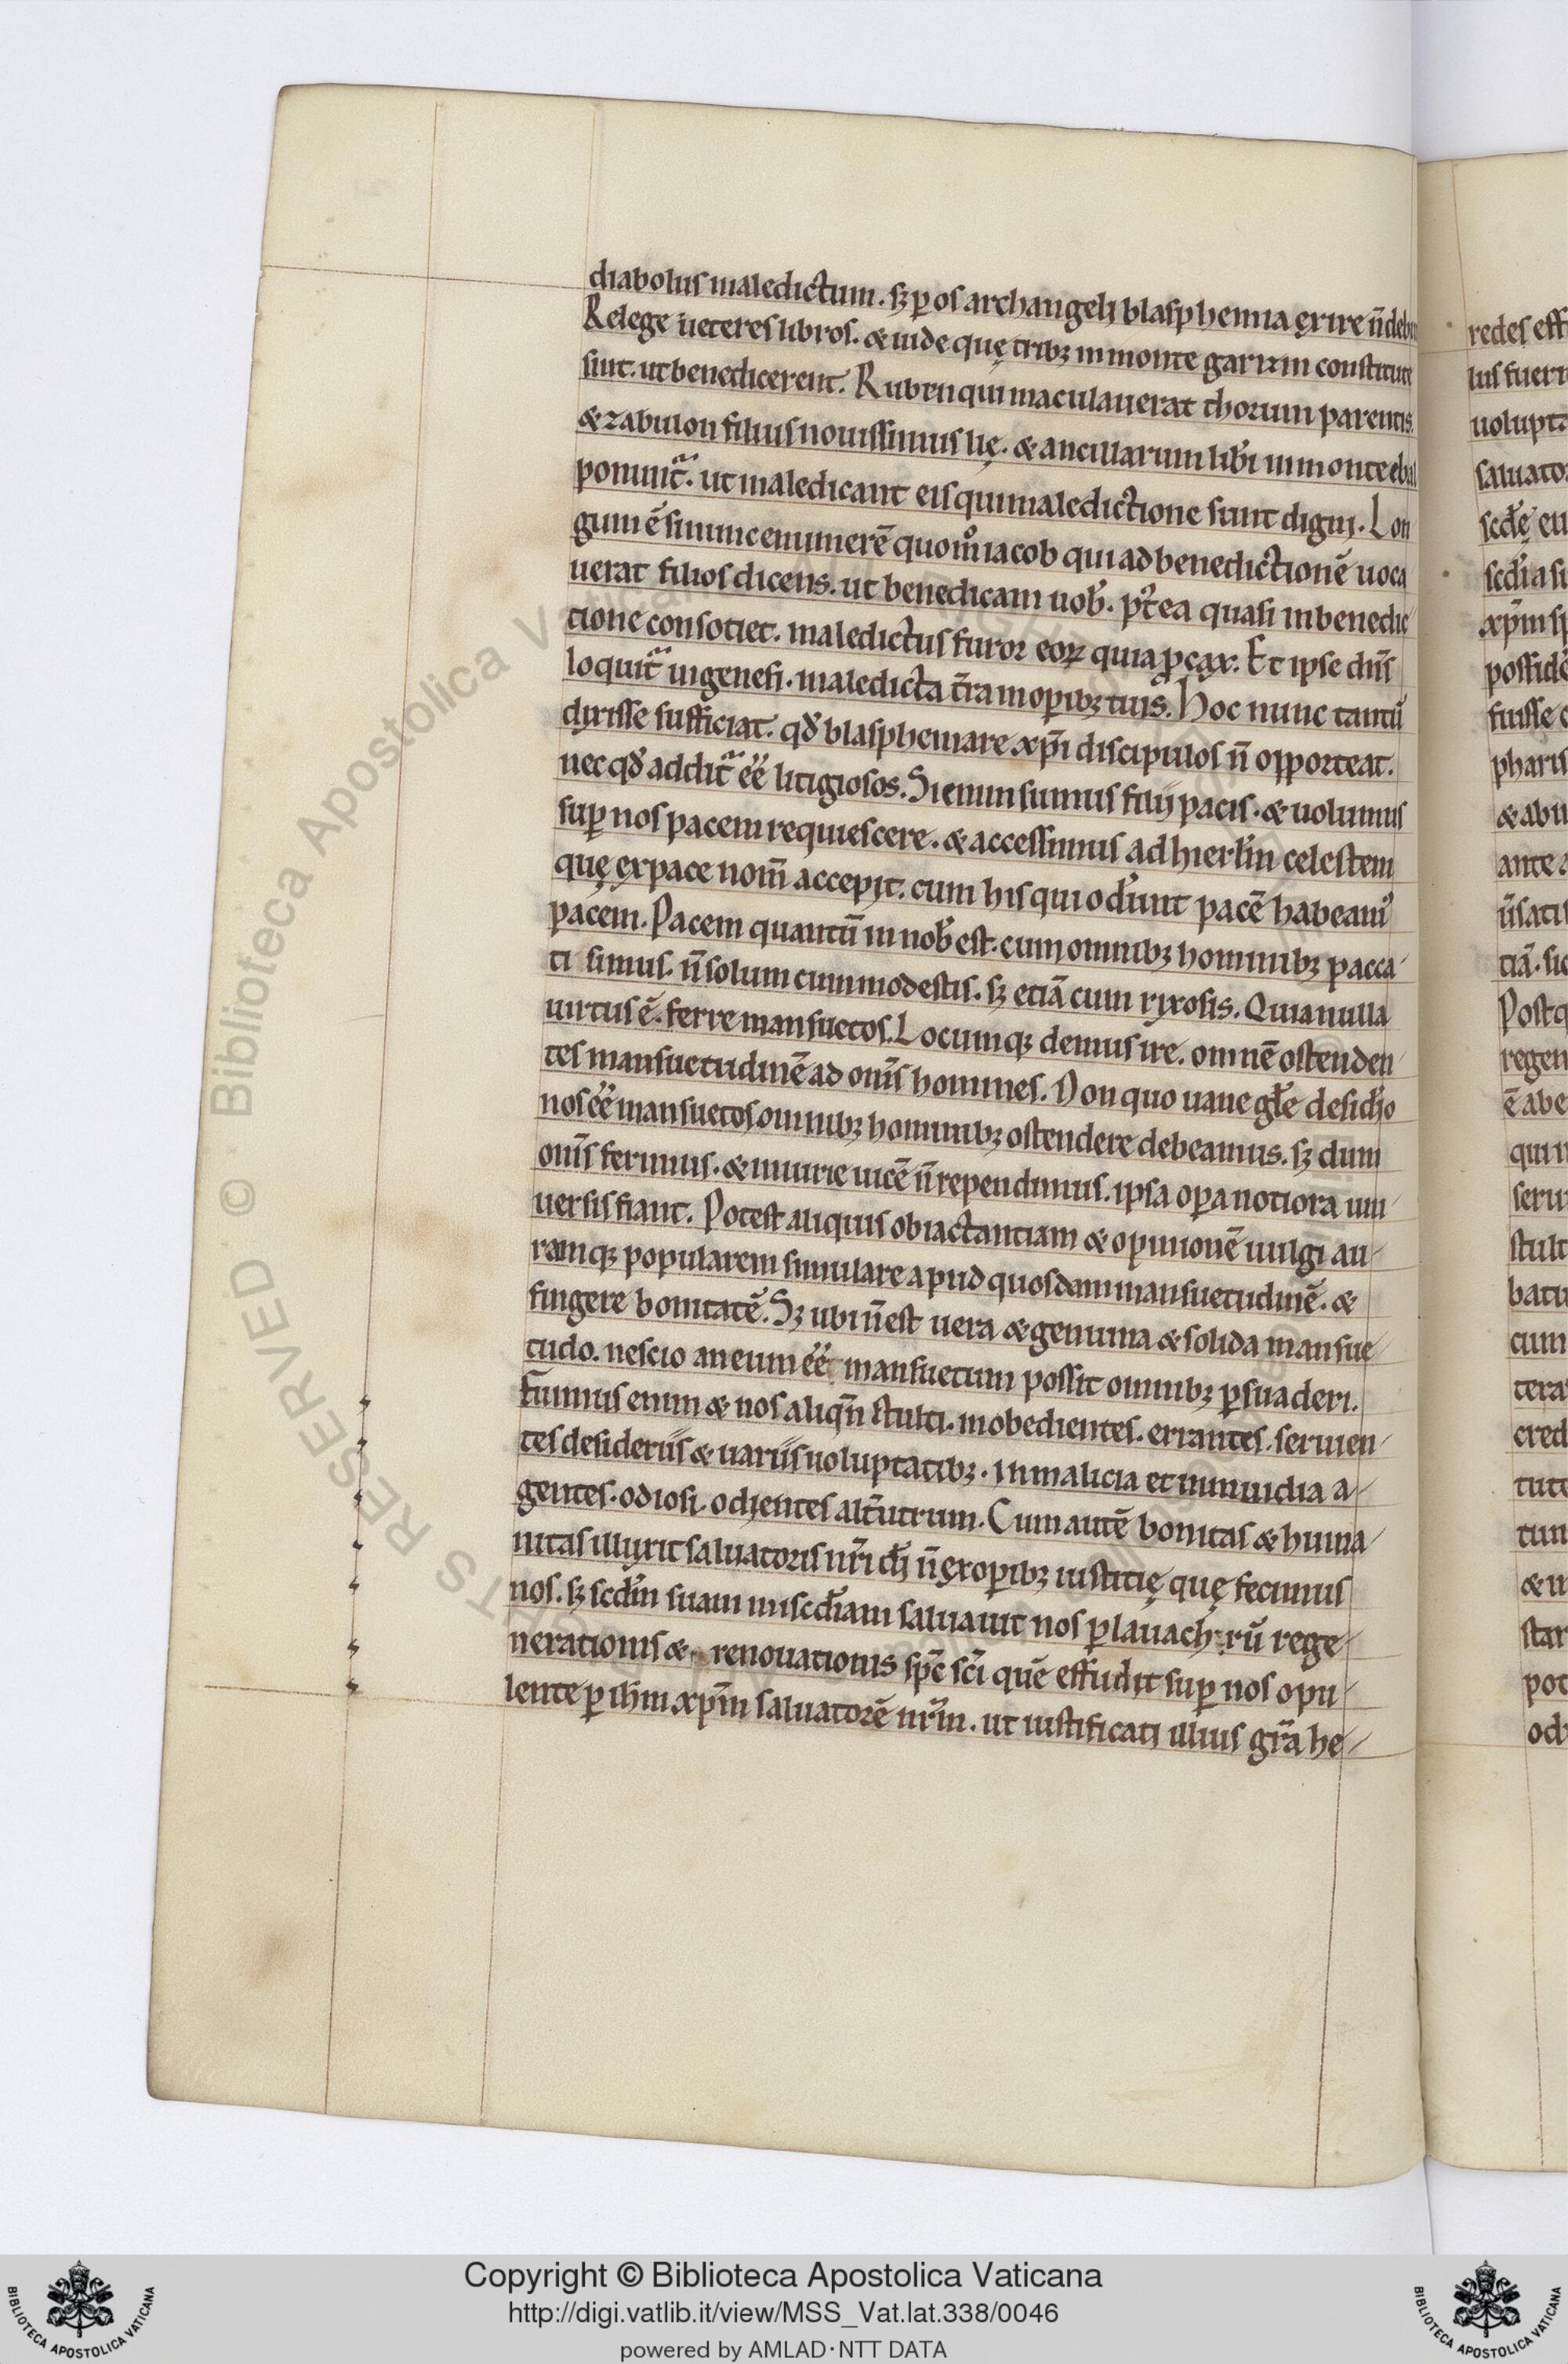 diabolus maledictum. sꝫ ꝑ os archangeli blasphemia exire n̄ debu
Relege ueteres libros. & uide quę tribꝫ in monte garizin constitute
sint. ut benedicerent. Ruben qui maculauerat thorum parentis.
& zabulon filius nouissimus lię. & ancillarum lib̓i in monte ebal
ponunt᷑. ut maledicant eis qui maledictione sunt digni. Lon
gum ē si nunc enumerē quom̊ iacob qui ad benedictionē uoca
uerat filios dicens. ut benedicam uob̓. pꝰtea quasi in benedic
tione consotiet. maledictus furor eoꝝ quia ꝓcax. Et ipse dn̄s
loquit᷑ in genesi. maledicta t̄ra in oꝑibꝫ tuis. Hoc nunc tantū
dixisse sufficiat. qd̓ blasphemare xp̄i discipulos n̄ opporteat.
nec qd̓ addit᷑ eē litigiosos. Si enim sumus filii pacis. & uolumus
suꝑ nos pacem requiescere. & accessimus ad hierl̓m celestem
quę ex pace nom̄ accepit. cum his qui od̓unt pacē habeamꝰ
pacem. Pacem quantū in nob̓ est. cum omnibꝫ hominibꝫ pacca
ti simus. n̄ solum cum modestis. sꝫ etiā cum rixosis. Quia nulla
uirtus ē. ferre mansuetos. Locumqꝫ demus ire. omnē ostenden
tes mansuetudinē ad om̄s homines. Non quo uane gl̓e desid̓io
nos eē mansuetos omnibꝫ hominibꝫ ostendere debeamus. sꝫ dum
om̄s ferimus. & iniurie uicē n̄ rependimus. ipsa oꝑa notiora uni
uersis fiant. Potest aliquis ob iactantiam & opinionē uulgi au
ramqꝫ popularem simulare apud quosdam mansuetudinē. &
fingere bonitatē. Sꝫ ubi n̄ est uera & genuina & solida mansue
tudo. nescio an eum eē mansuetum possit omnibꝫ ꝑsuaderi.
F̄uimus enim & nos aliqn̄ stulti. inobedientes. errantes. seruien
tes desideriis & uariis uoluptatibꝫ. in malicia et in inuidia a
gentes. odiosi. odientes alt̄utrum. Cum autē bonitas & huma
nitas illuxit saluatoris nr̄i di̓ n̄ ex oꝑibꝫ iustitię quę fecimus
nos. sꝫ scd̓m suam misc̓diam saluauit nos ꝑ lauachrū rege
nerationis & renouationis sp̄c sc̄i quē effudit suꝑ nos opu
lente ꝑ ih̄m xp̄m saluatorē nr̄m. ut iustificati illius gr̄a he
redes eff
lus fuer
uolupta
saluato
scd̓ę eu
scd̓ia su
xp̄m sp
posside
fuisse
pharis
& abu
ante a
n̄ satis
tiā. sic
Postq
regen
ē abe
qui
seru
stult
batu
cum
tera
cred
tute
tun
& 
star
pot
od
Copyright © Biblioteca Apostolica Vaticana
http://digi.vatlib.it/view/MSS_Vat.lat.338/0046
powered by AMLAD·NTT DATA
BIBLIOTECA APOSTOLICA VATICANA
BIBLIOTECA APOSTOLICA VATICANA